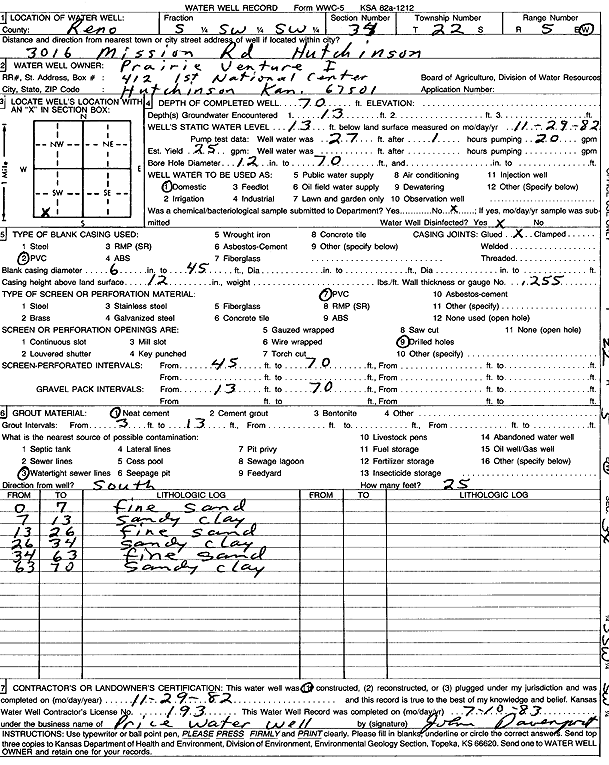 WATER WELL RECORD Form WWC-5 KSA 82a-1212
1 LOCATION OF WATER WELL: Fraction Section Number Township Number Range Number
County: Reno S ¼ SW ¼ SW ¼ 34 T 22 S R 5 E(W)
Distance and direction from nearest town or city street address of well if located within city?
3016 Mission Rd Hutchinson
2 WATER WELL OWNER: Prairie Venture I
RR#, St. Address, Box # : 412 1st National Center Board of Agriculture, Division of Water Resources
City, State, ZIP Code : Hutchinson Kan. 67501 Application Number:
3 LOCATE WELL'S LOCATION WITH AN "X" IN SECTION BOX:
N
NW NE
W E
SW SE
X
S
1 Mile
4 DEPTH OF COMPLETED WELL 70 ft. ELEVATION:
Depth(s) Groundwater Encountered 1. 13 ft. 2. ft. 3. ft.
WELL'S STATIC WATER LEVEL 13 ft. below land surface measured on mo/day/yr 11-29-82
Pump test data: Well water was 27 ft. after 1 hours pumping 20 gpm
Est. Yield 25 gpm: Well water was ft. after hours pumping gpm
Bore Hole Diameter 12 in. to 70 ft., and in. to ft.
WELL WATER TO BE USED AS: 5 Public water supply 8 Air conditioning 11 Injection well
1 Domestic 3 Feedlot 6 Oil field water supply 9 Dewatering 12 Other (Specify below)
2 Irrigation 4 Industrial 7 Lawn and garden only 10 Observation well
Was a chemical/bacteriological sample submitted to Department? Yes No X ; If yes, mo/day/yr sample was sub-
mitted Water Well Disinfected? Yes X No
5 TYPE OF BLANK CASING USED: 5 Wrought iron 8 Concrete tile CASING JOINTS: Glued X Clamped
1 Steel 3 RMP (SR) 6 Asbestos-Cement 9 Other (specify below) Welded
2 PVC 4 ABS 7 Fiberglass Threaded
Blank casing diameter 6 in. to 45 ft., Dia in. to ft., Dia in. to ft.
Casing height above land surface 12 in., weight lbs./ft. Wall thickness or gauge No. .255
TYPE OF SCREEN OR PERFORATION MATERIAL: 7 PVC 10 Asbestos-cement
1 Steel 3 Stainless steel 5 Fiberglass 8 RMP (SR) 11 Other (specify)
2 Brass 4 Galvanized steel 6 Concrete tile 9 ABS 12 None used (open hole)
SCREEN OR PERFORATION OPENINGS ARE: 5 Gauzed wrapped 8 Saw cut 11 None (open hole)
1 Continuous slot 3 Mill slot 6 Wire wrapped 9 Drilled holes
2 Louvered shutter 4 Key punched 7 Torch cut 10 Other (specify)
SCREEN-PERFORATED INTERVALS: From 45 ft. to 70 ft., From ft. to ft.
From ft. to ft., From ft. to ft.
GRAVEL PACK INTERVALS: From 13 ft. to 70 ft., From ft. to ft.
From ft. to ft., From ft. to ft.
6 GROUT MATERIAL: 1 Neat cement 2 Cement grout 3 Bentonite 4 Other
Grout Intervals: From 3 ft. to 13 ft., From ft. to ft., From ft. to ft.
What is the nearest source of possible contamination: 10 Livestock pens 14 Abandoned water well
1 Septic tank 4 Lateral lines 7 Pit privy 11 Fuel storage 15 Oil well/Gas well
2 Sewer lines 5 Cess pool 8 Sewage lagoon 12 Fertilizer storage 16 Other (specify below)
3 Watertight sewer lines 6 Seepage pit 9 Feedyard 13 Insecticide storage
Direction from well? South How many feet? 25
FROM TO LITHOLOGIC LOG FROM TO LITHOLOGIC LOG
0 7 fine sand
7 13 sandy clay
13 26 fine sand
26 34 sandy clay
34 63 fine sand
63 70 sandy clay
7 CONTRACTOR'S OR LANDOWNER'S CERTIFICATION: This water well was (1) constructed, (2) reconstructed, or (3) plugged under my jurisdiction and was
completed on (mo/day/year) 11-29-82 and this record is true to the best of my knowledge and belief. Kansas
Water Well Contractor's License No. 193 This Water Well Record was completed on (mo/day/yr) 7-10-83
under the business name of Price Water Well by (signature) John Davenport
INSTRUCTIONS: Use typewriter or ball point pen, PLEASE PRESS FIRMLY and PRINT clearly. Please fill in blanks, underline or circle the correct answers. Send top
three copies to Kansas Department of Health and Environment, Division of Environment, Environmental Geology Section, Topeka, KS 66620. Send one to WATER WELL
OWNER and retain one for your records.